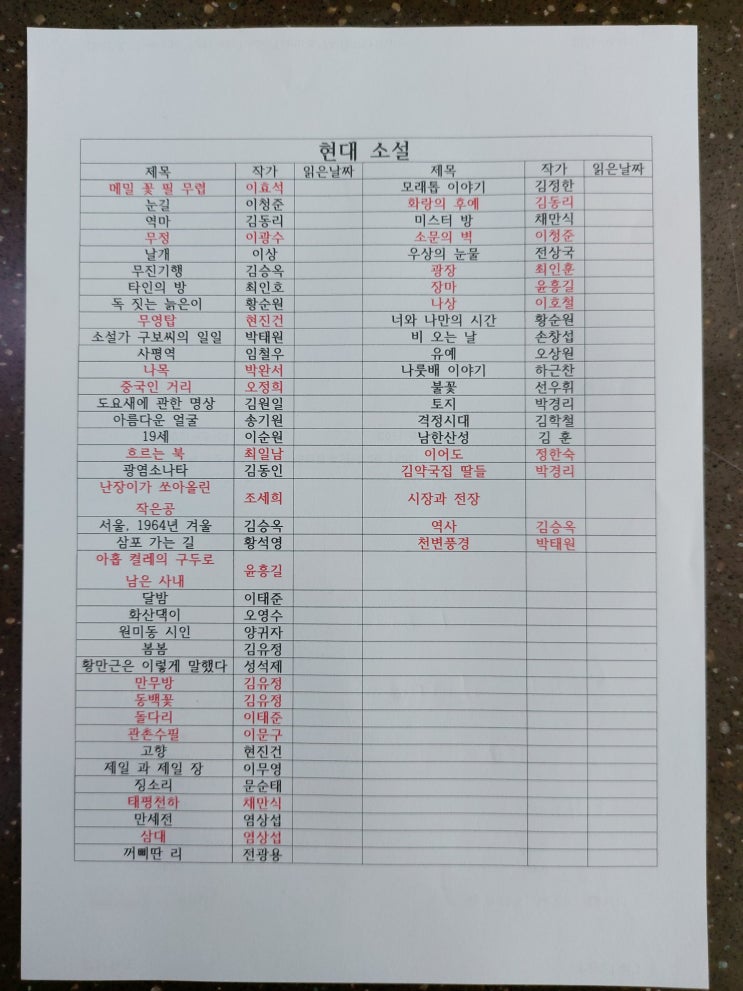 현대 소설
제목 작가 읽은날짜 제목 작가 읽은날짜
메밀 꽃 필 무렵 이효석 모래톱 이야기 김정한
눈길 이청준 화랑의 후예 김동리
역마 김동리 미스터 방 채만식
무정 이광수 소문의 벽 이청준
날개 이상 우상의 눈물 전상국
무진기행 김승옥 광장 최인훈
타인의 방 최인호 장마 윤흥길
독 짓는 늙은이 황순원 나상 이호철
무영탑 현진건 너와 나만의 시간 황순원
소설가 구보씨의 일일 박태원 비 오는 날 손창섭
사평역 임철우 유예 오상원
나목 박완서 나룻배 이야기 하근찬
중국인 거리 오정희 불꽃 선우휘
도요새에 관한 명상 김원일 토지 박경리
아름다운 얼굴 송기원 격정시대 김학철
19세 이순원 남한산성 김 훈
흐르는 북 최일남 이어도 정한숙
광염소나타 김동인 김약국집 딸들 박경리
난장이가 쏘아올린
작은공 조세희 시장과 전장
서울, 1964년 겨울 김승옥 역사 김승옥
삼포 가는 길 황석영 천변풍경 박태원
아홉 켤레의 구두로
남은 사내 윤흥길
달밤 이태준
화산댁이 오영수
원미동 시인 양귀자
봄봄 김유정
황만근은 이렇게 말했다 성석제
만무방 김유정
동백꽃 김유정
돌다리 이태준
관촌수필 이문구
고향 현진건
제일 과 제일 장 이무영
징소리 문순태
태평천하 채만식
만세전 염상섭
삼대 염상섭
꺼삐딴 리 전광용